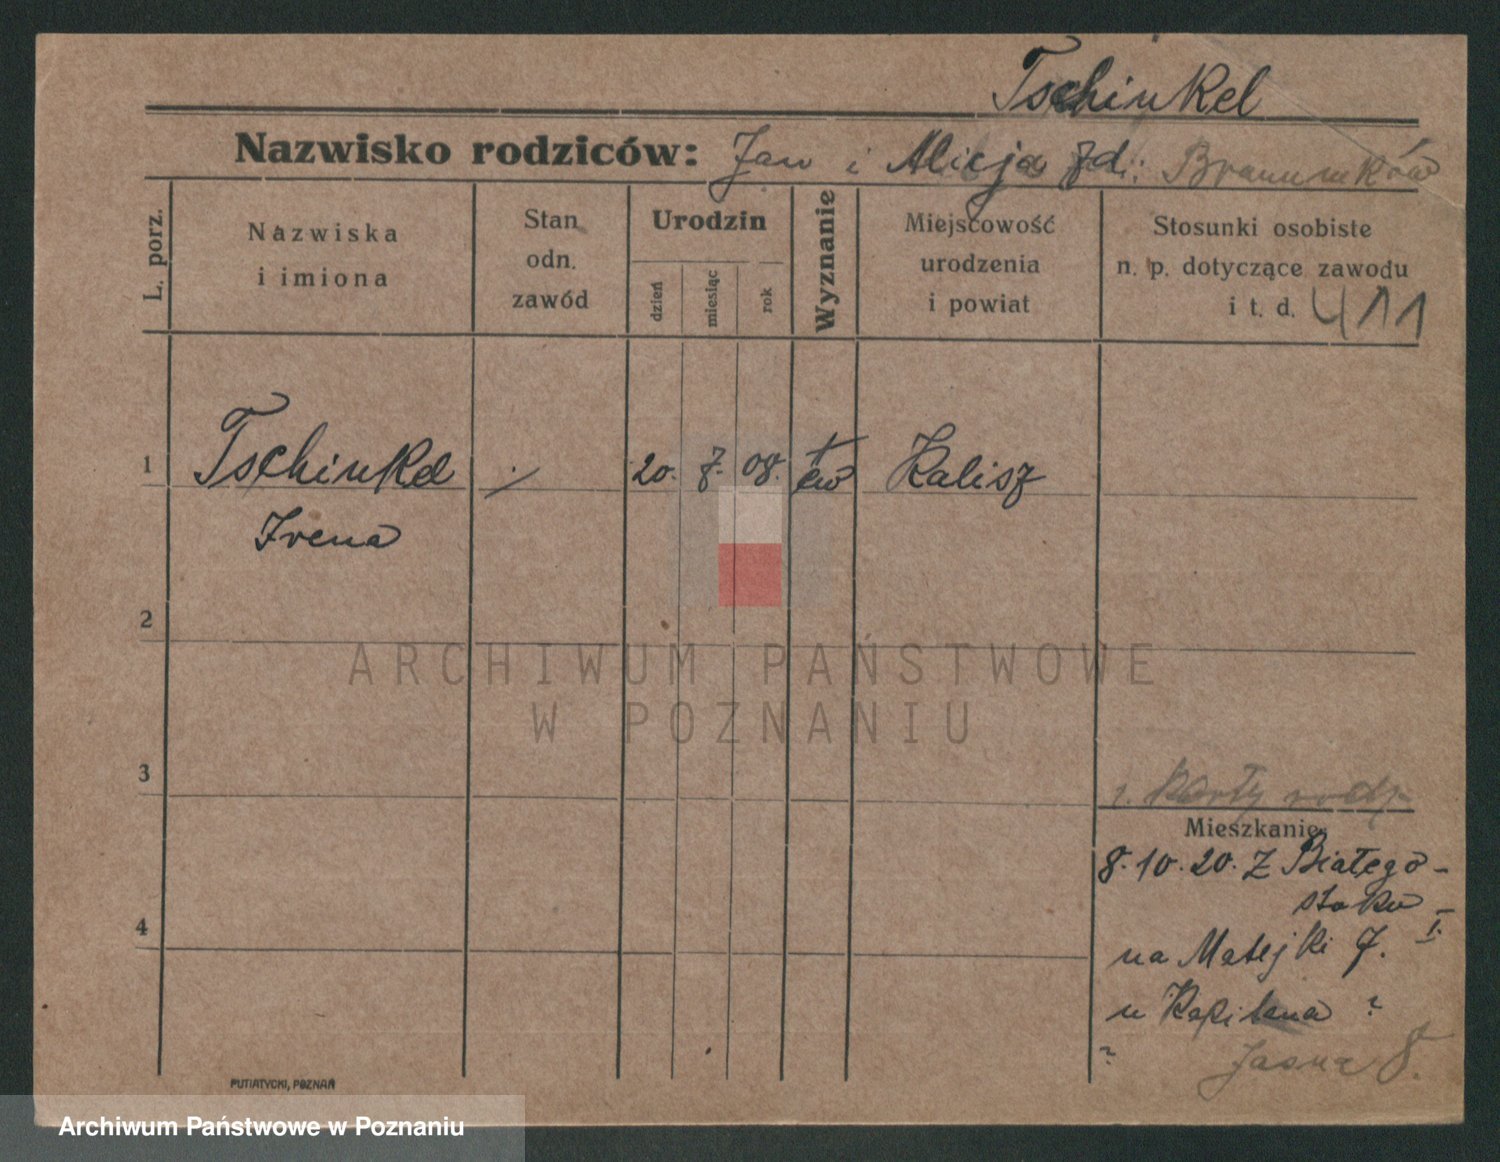 Tschinkel
Nazwisko rodziców: Jan i Alicja zd: Braunnków
L. porz.
Nazwiska
i imiona
Stan
odn.
zawód
Urodzin
dzień
miesiąc
rok
Wyznanie
Miejscowość
urodzenia
i powiat
Stosunki osobiste
n. p. dotyczące zawodu
i t. d. 411
1 Tschinkel 20. 7. 08. ew Kalisz
Irena
2
ARCHIWUM PAŃSTWOWE
W POZNANIU
3
z. Karty rodz
Mieszkanie
8.10.20. Z Białego-
stoku -
na Matejki 7. I.
u Kapitana ?
?
Jasna 8.
4
PUTIATYCKI, POZNAŃ
Archiwum Państwowe w Poznaniu